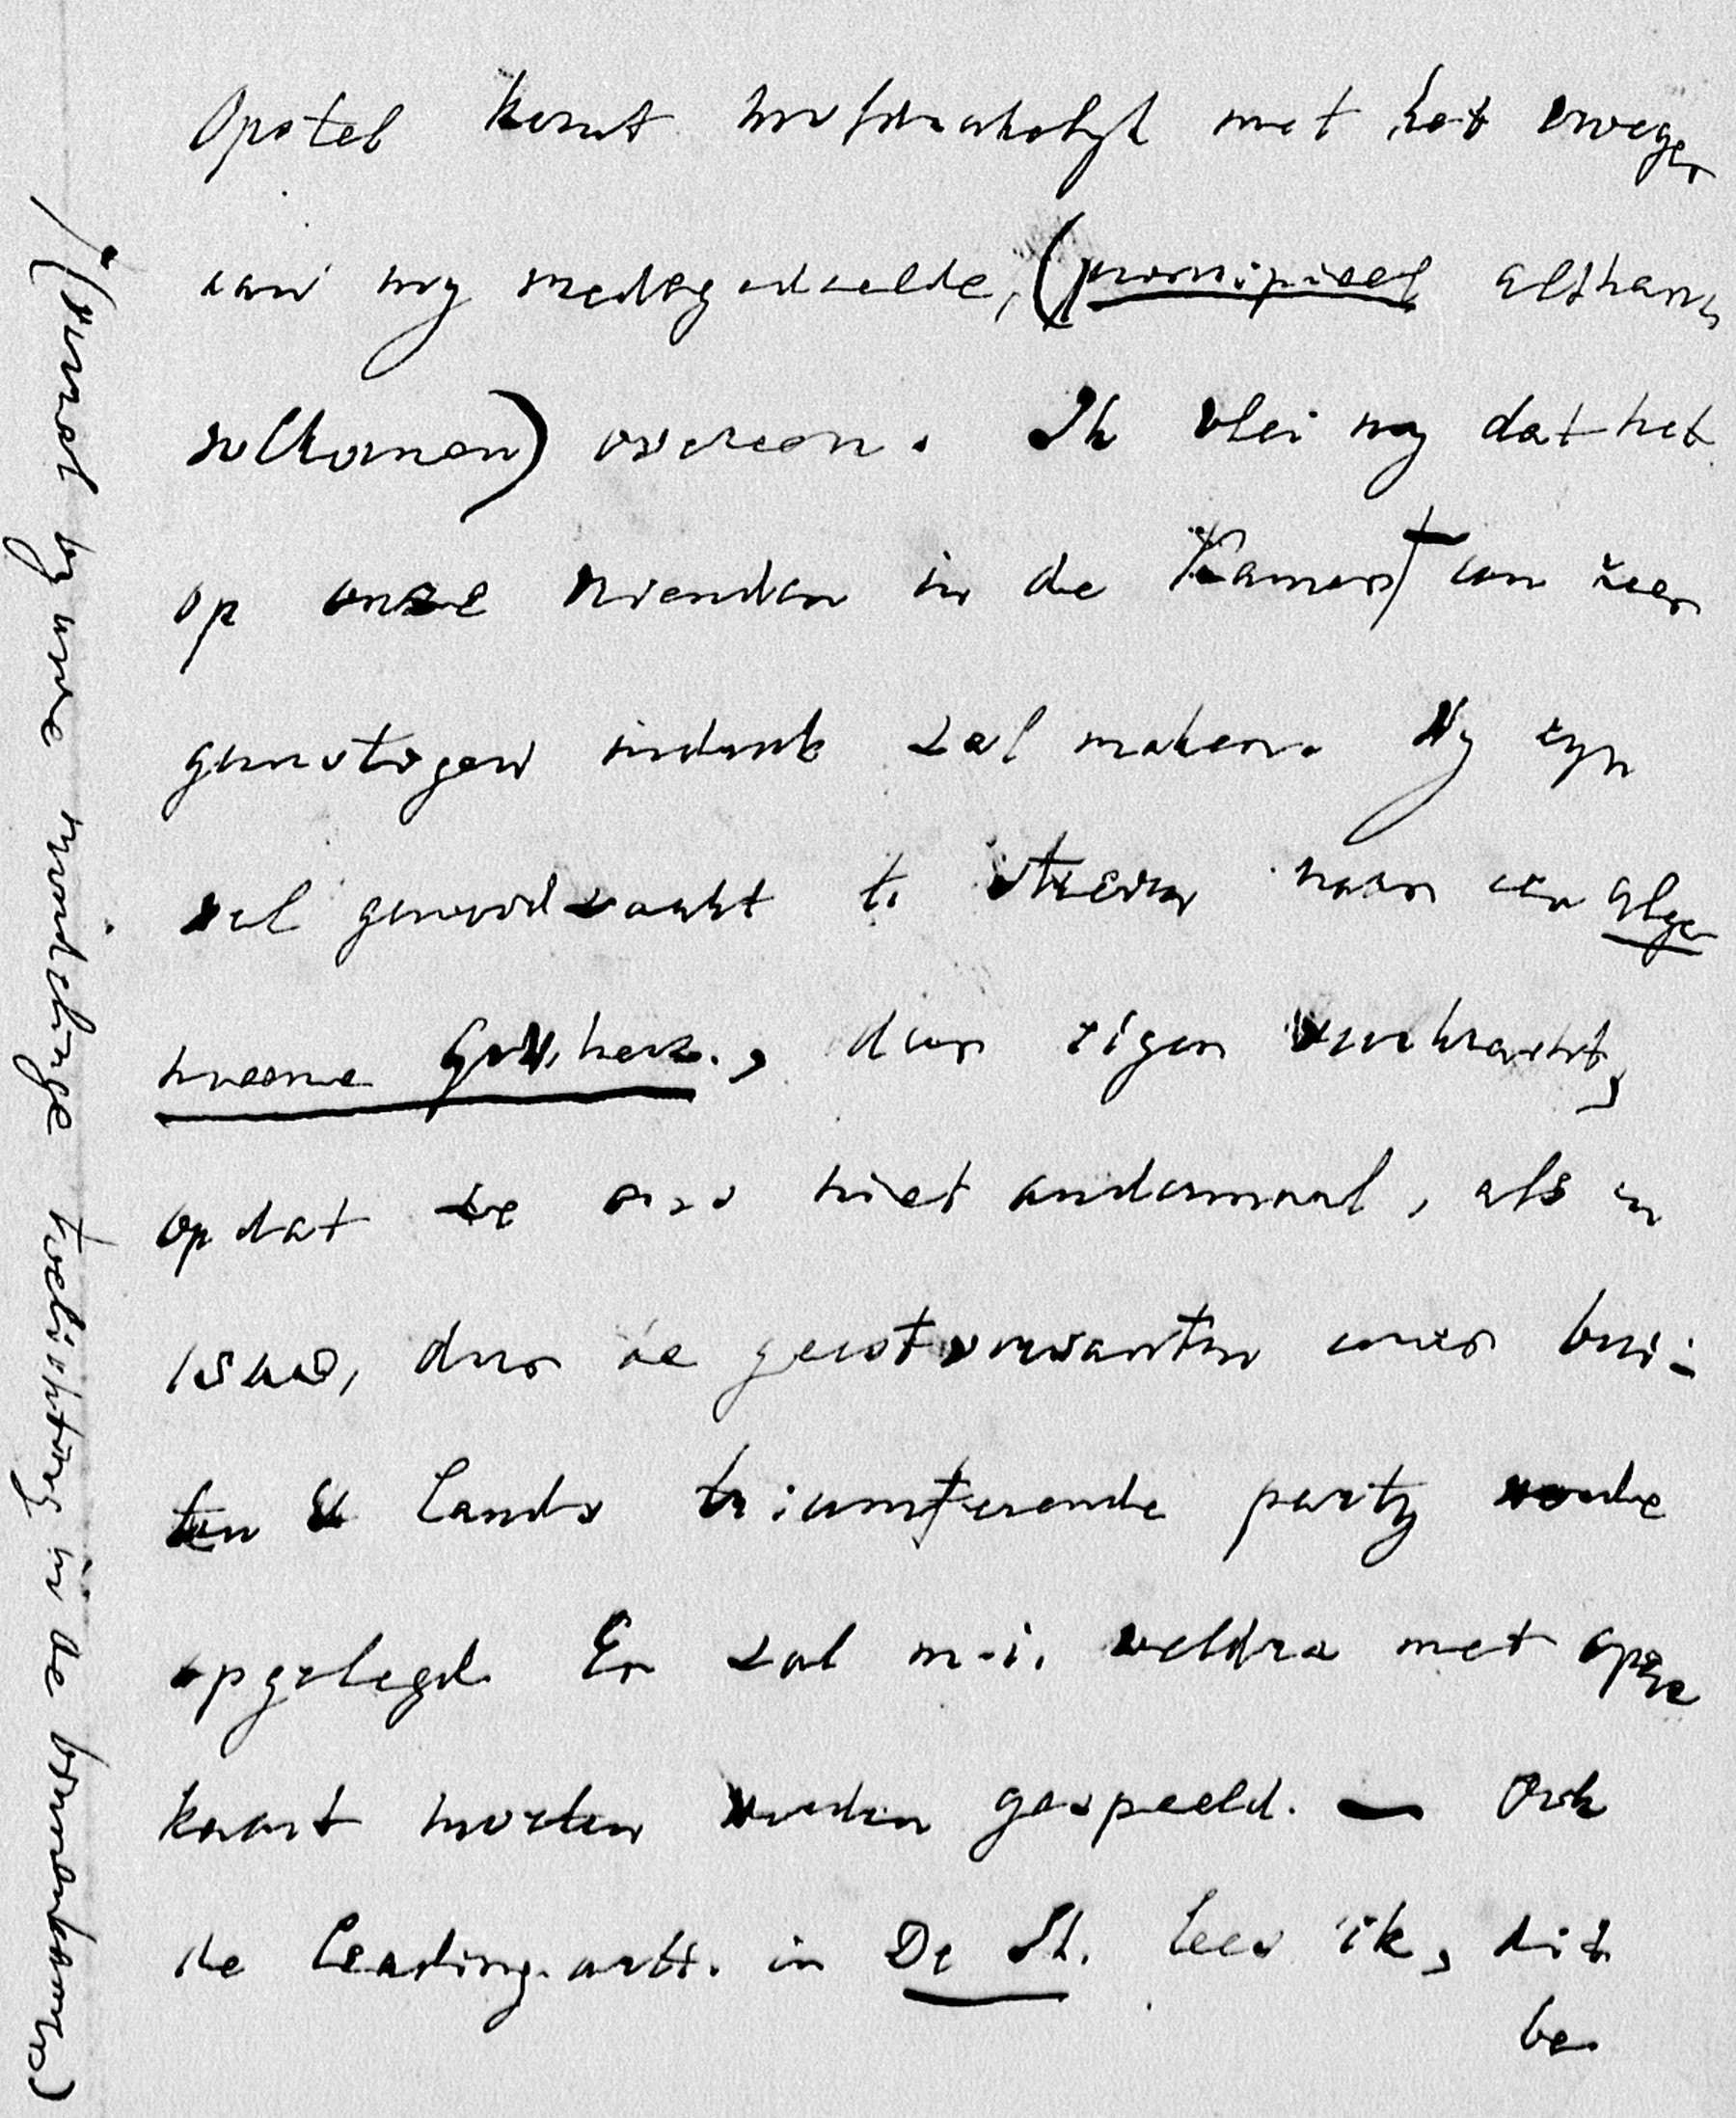 Opstel komt hoofdzakelyk met het vroeger
aan my medegedeelde, (principieel althans
volkomen) overeen. Ik vlei my dat het
op onze vrienden in de Kamer† een zeer
gunstigen indruk zal maken. Wy zyn
wel genoodzaakt te streven naar een alge
meene Grw.herz., door eigen veerkracht,
opdat ze ons niet andermaal, als in
1848, door de geestverwanten eener bui-
ten 's Lands triumferende party worde
opgelegd. Er zal m.i. weldra met open
kaart moeten worden gespeeld. — Ook
de leading-artt. in De St. lees ik, dit
be-
†(vooral by uwe mondelinge toelichting in de byeenkomst)